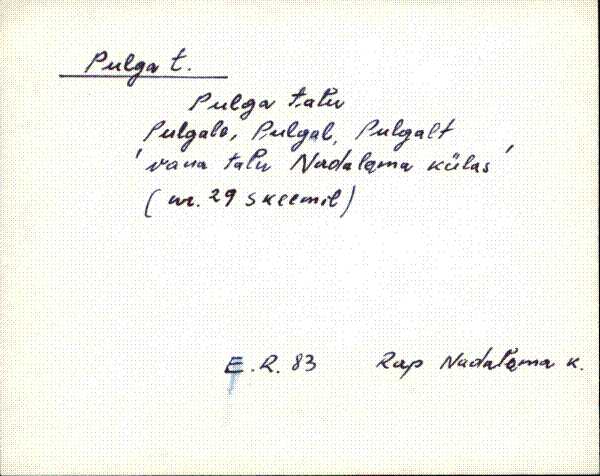 Pulga t.
Pulga talu
Pulgale, Pulgal, Pulgalt
'vana talu Nadalama külas'
(nr. 29 skeemil)
E.R. 83 Rap Nadalama k.